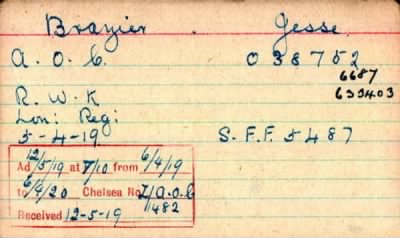 Brazier Jesse
A. O. C. 038752
6687
R. W. K 633403
Lon: Reg:
5-4-19 S. F. F. 5487
Ad 12/5/19 at 7/10 from 6/4/19
to 6/4/20 Chelsea No 7/A.O.C
1482
Received 12-5-19